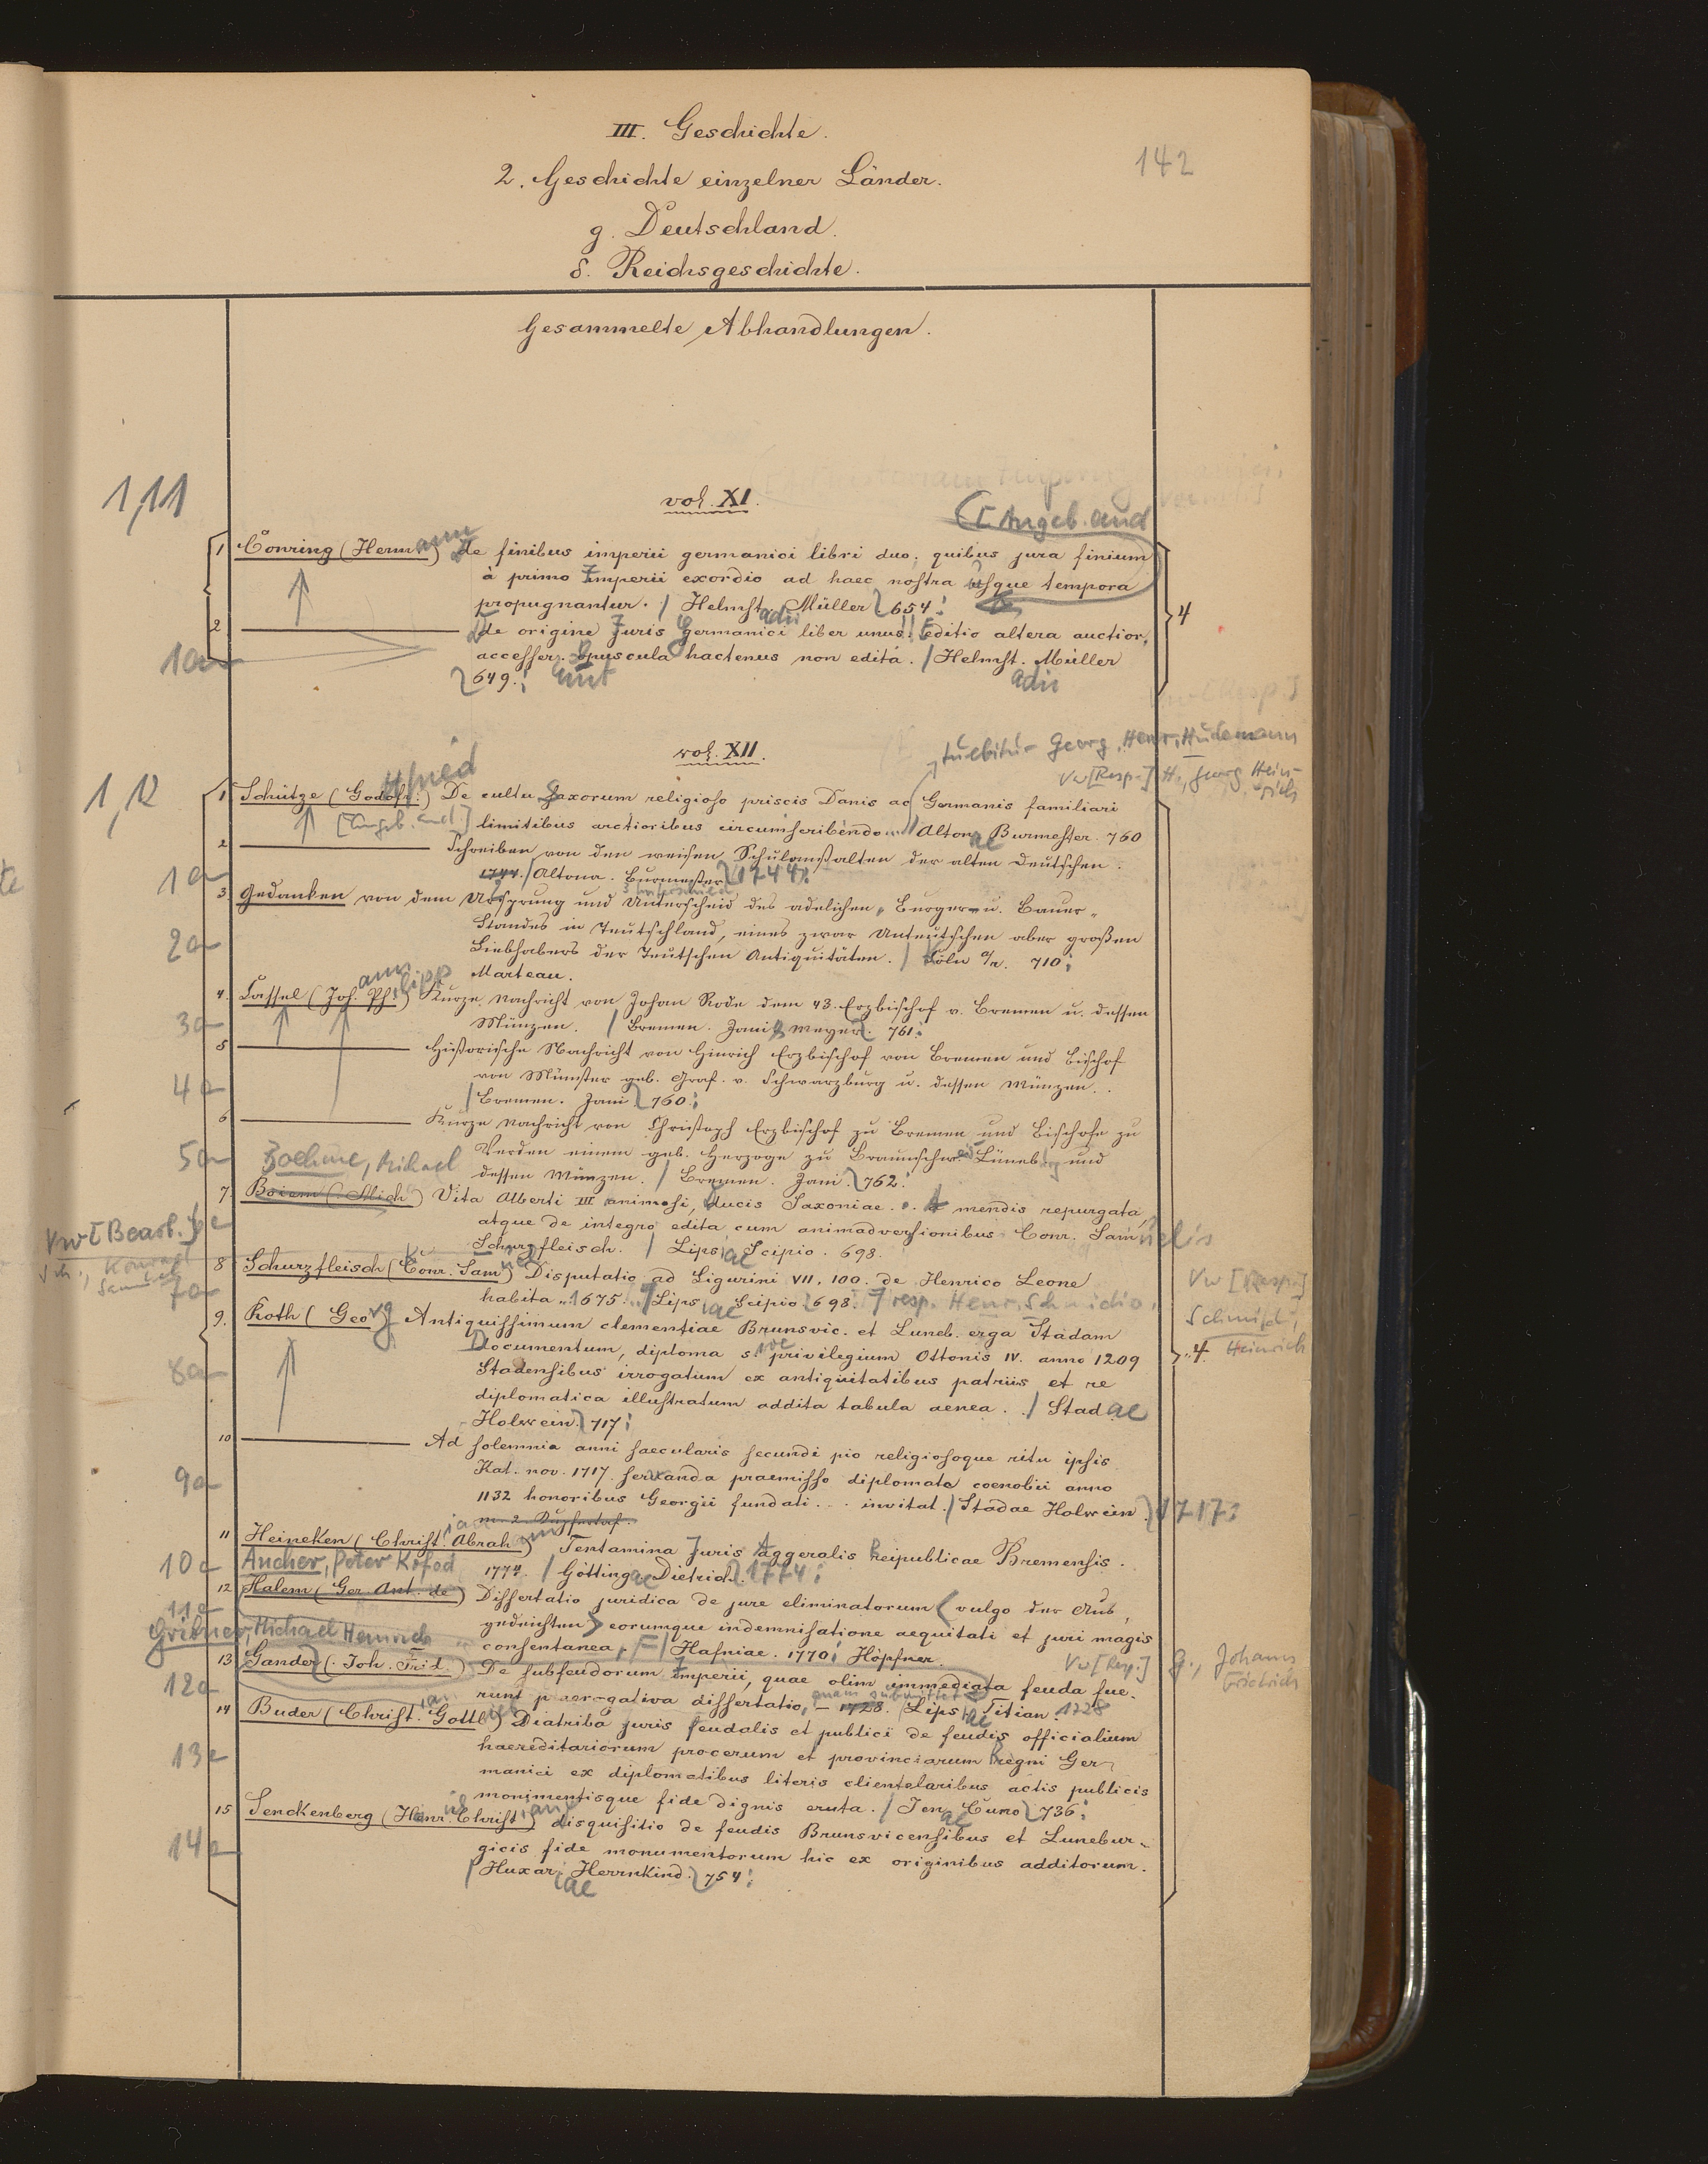 III. Geschichte.
142
2. Geschichte einzelner Länder.
g. Deutschland.
δ. Reichsgeschichte.
Gesammelte Abhandlungen.
1,11
vol. XI.
[Angeb. and
1 Conring (Hermann) de finibus imperii germanici libri duo, quibus jura finium
à primo Imperii exordio ad haec nostra usque tempora
propugnantur. / Helmstadii Müller 654.
4
2 de origine Juris Germanici liber unus! Editio altera auctior,
1a
accesser. opuscula hactenus non edita. / Helmst. Müller
649. adii
vol. XII.
tuebitur Georg. Henr. Hudemann
Vw [Resp.] H., Georg Heinrich
1,12
1 Schütze (Gottfried) De cultu Saxorum religioso priscis Danis ac Germanis familiari
[Angeb. and.] limitibus arctioribus circumscribendo... / Altonae Burmester. 760
2 Schreiben von den weisen Schulanstalten der alten Deutschen.
1a
1744. / Altona. Burmester 1744.
3 Gedanken von dem Ursprung und Unterscheid des adelichen, Burger- u. Bauer-
Standes in Teutschland, eines zwar Unteutschen aber großen
2a
Liebhabers der Teutschen Antiquitäten. / Cöln a/R. 710.
Marteau.
4. Cassel (Johann Philipp) Kurze Nachricht von Johan Rode dem 43. Erzbischof v. Bremen u. dessen
3a
Münzen. / Bremen. Jani & Meyer. 761.
5 Historische Nachricht von Hinrich Erzbischof von Bremen und Bischof
von Münster geb. Graf. v. Schwarzburg u. dessen Münzen.
4a
/ Bremen. Jani 760.
6 Kurze Nachricht von Christoph Erzbischof zu Bremen und Bischofe zu
5a
Verden einem geb. Herzoge zu Braunschw. Lüneb. und
Boehme, Michael
dessen Münzen. / Bremen. Jani. 762.
7. Boiem (Mich) Vita Alberti III animosi, ducis Saxoniae. mendis repurgata,
6a
atque de integro edita cum animadversionibus Conr. Samuelis
Vw [Bearb.]
Sch., Konrad
Samuel
Schurzfleisch. / Lipsiae Scipio. 698.
8 Schurzfleisch (Conr. Samuel) Disputatio ad Ligurini VII. 100. de Henrico Leone
Vw [Resp.]
7a
habita .. 1675. .. / Lipsiae Scipio 698. resp. Henr. Schmidio.
Schmid,
Heinrich
9. Roth (Georg) Antiquissimum clementiae Brunsvic. et Luneb. erga Stadam
Documentum, diploma sive privilegium Ottonis IV. anno 1209
4.
8a
Stadensibus irrogatum ex antiquitatibus patriis et re
diplomatica illustratum addita tabula aenea. / Stadae
Holwein 717.
10 Ad solemnia anni saecularis secundi pio religiosoque ritu ipsis
9a
Kal. nov. 1717. servanda praemisso diplomate coenobii anno
1132 honoribus Georgii fundati... invitat. / Stadae Holwein 1717.
11 Heineken (Christian Abraham) Tentamina Juris Aggeralis Reipublicae Bremensis.
10a
1774. / Göttingae Dietrich 1774.
Ancher, Peter Kofod
12 Halem (Ger. Ant. de) Dissertatio juridica de jure eliminatorum (vulgo der Aus-
11a
gedeichten) eorumque indemnisatione aequitati et juri magis
Gribner, Michael Heinrich
consentanea. / Hafniae. 1770. Höpfner.
Vw [Resp.] G., Johann
Friedrich
13 Gander (Joh. Frid.) De subfeudorum Imperii, quae olim immediata feuda fue-
12a
runt praerogativa dissertatio, quam submittet 1728. / Lipsiae Titian. 1728
14 Buder (Christian Gottlieb) Diatriba juris feudalis et publici de feudis officialium
13a
haereditariorum procerum et provinciarum Regni Ger-
manici ex diplomatibus literis clientelaribus actis publicis
monimentisque fide dignis eruta. / Jenae Cuno 736.
15 Senckenberg (Henr. Christian) disquisitio de feudis Brunsvicensibus et Lunebur-
14a
gicis fide monumentorum hic ex originibus additorum.
/ Huxariae Herrnkind. 754.